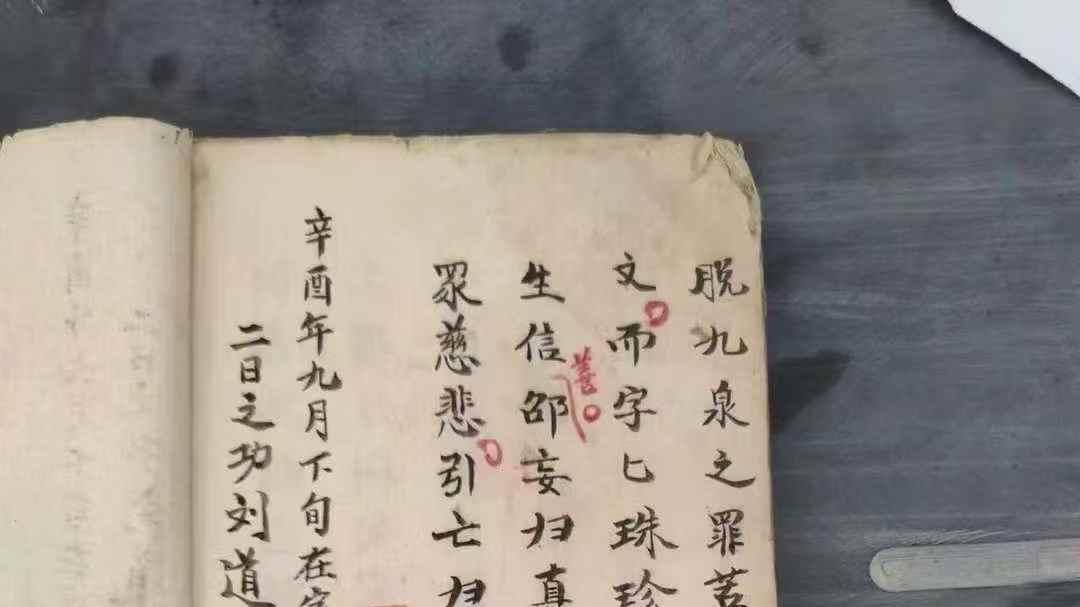 脱九泉之罪苦
文而字匕珠珍
生信邵妄归真
善
眾慈悲引亡归
辛酉年九月下旬在家
二日之功刘道